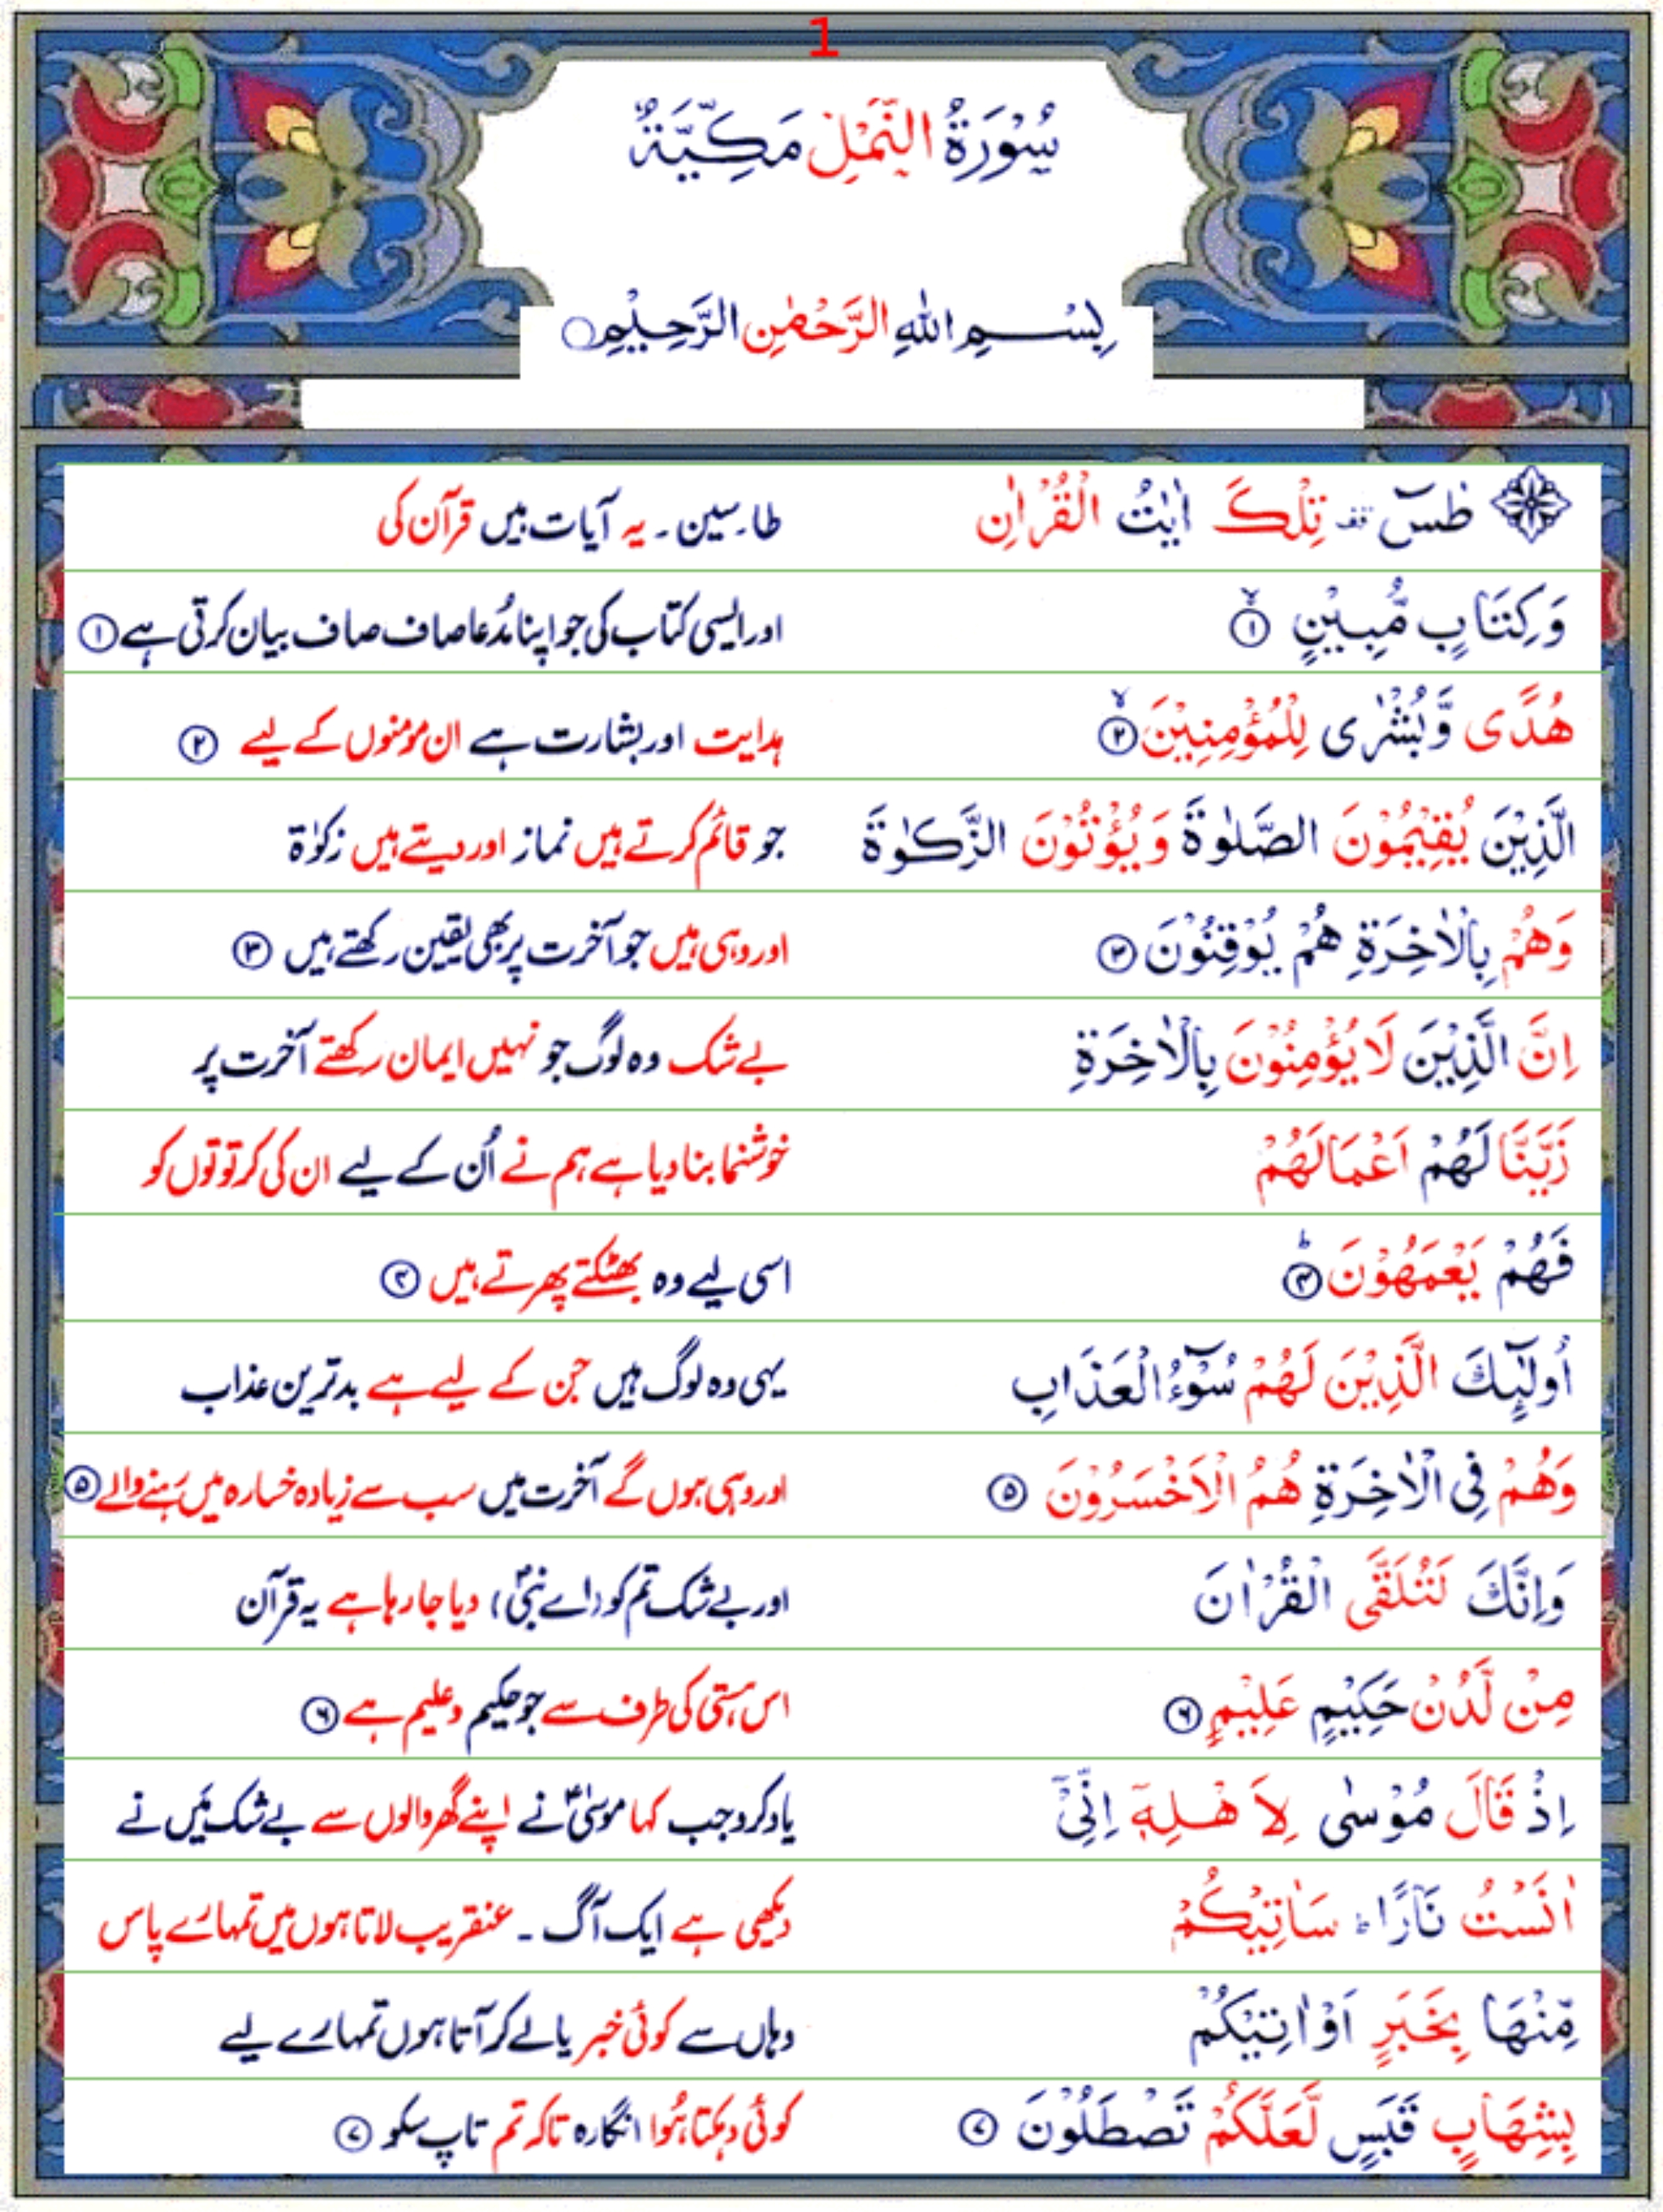 1
سُوْرَةُ النَّمْلِ مَكِّيَّةٌ
بِسْمِ اللّٰهِ الرَّحْمٰنِ الرَّحِيْمِ
طٰسٓ تف تِلْكَ اٰيٰتُ الْقُرْاٰنِ طا۔سین۔ یہ آیات ہیں قرآن کی
وَكِتَابٍ مُّبِيْنٍ ۙ﴿۱﴾ اور ایسی کتاب کی جو اپنا مُدّعا صاف صاف بیان کرتی ہے ﴿۱﴾
هُدًى وَّبُشْرٰى لِلْمُؤْمِنِيْنَ ۙ﴿۲﴾ ہدایت اور بشارت ہے ان مومنوں کے لیے ﴿۲﴾
الَّذِيْنَ يُقِيْمُوْنَ الصَّلٰوةَ وَيُؤْتُوْنَ الزَّكٰوةَ جو قائم کرتے ہیں نماز اور دیتے ہیں زکوٰۃ
وَهُمْ بِالْاٰخِرَةِ هُمْ يُوْقِنُوْنَ ﴿۳﴾ اور وہی ہیں جو آخرت پر بھی یقین رکھتے ہیں ﴿۳﴾
اِنَّ الَّذِيْنَ لَا يُؤْمِنُوْنَ بِالْاٰخِرَةِ بے شک وہ لوگ جو نہیں ایمان رکھتے آخرت پر
زَيَّنَّا لَهُمْ اَعْمَالَهُمْ خوشنما بنا دیا ہے ہم نے اُن کے لیے ان کی کرتوتوں کو
فَهُمْ يَعْمَهُوْنَ ؕ﴿۴﴾ اسی لیے وہ بھٹکتے پھرتے ہیں ﴿۴﴾
اُولٰٓئِكَ الَّذِيْنَ لَهُمْ سُوْٓءُ الْعَذَابِ یہی وہ لوگ ہیں جن کے لیے ہے بدترین عذاب
وَهُمْ فِى الْاٰخِرَةِ هُمُ الْاَخْسَرُوْنَ ﴿۵﴾ اور وہی ہوں گے آخرت میں سب سے زیادہ خسارہ میں رہنے والے ﴿۵﴾
وَاِنَّكَ لَتُلَقَّى الْقُرْاٰنَ اور بے شک تم کو (اے نبیؐ) دیا جا رہا ہے یہ قرآن
مِنْ لَّدُنْ حَكِيْمٍ عَلِيْمٍ ﴿۶﴾ اس ہستی کی طرف سے جو حکیم وعلیم ہے ﴿۶﴾
اِذْ قَالَ مُوْسٰى لِاَهْلِهٖٓ اِنِّىْٓ یاد کرو جب کہا موسیٰؑ نے اپنے گھر والوں سے بے شک مَیں نے
اٰنَسْتُ نَارًا ؕ سَاٰتِيْكُمْ دیکھی ہے ایک آگ ۔ عنقریب لاتا ہوں میں تمہارے پاس
مِّنْهَا بِخَبَرٍ اَوْ اٰتِيْكُمْ وہاں سے کوئی خبر یا لے کر آتا ہوں تمہارے لیے
بِشِهَابٍ قَبَسٍ لَّعَلَّكُمْ تَصْطَلُوْنَ ﴿۷﴾ کوئی دہکتا ہُوا انگارہ تاکہ تم تاپ سکو ﴿۷﴾